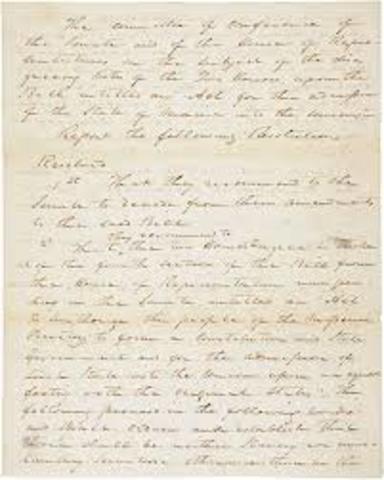 The committee of conference of
the Senate and of the House of Repre
sentatives on the subject of the disa
greeing votes of the Two Houses upon the
Bill entitled an Act for the admission
of the State of into the Union
Report the following Resolution
Resolved
1st That they recommend to the
Senate to recede from their amendments
to the said Bill
they recommend to
2 That the two Houses agree to strike
out of the fourth section of the Bill from
the House of Representatives now pen
ding in the Senate entitled an Act
to authorize the people of the Missouri
Territory to form a Constitution and State
Government and for the admission of
such State into the Union upon an equal
footing with the original States the
following proviso in the following words
and shall ordain and establish that
there shall be neither Slavery nor invo
luntary servitude otherwise than in the